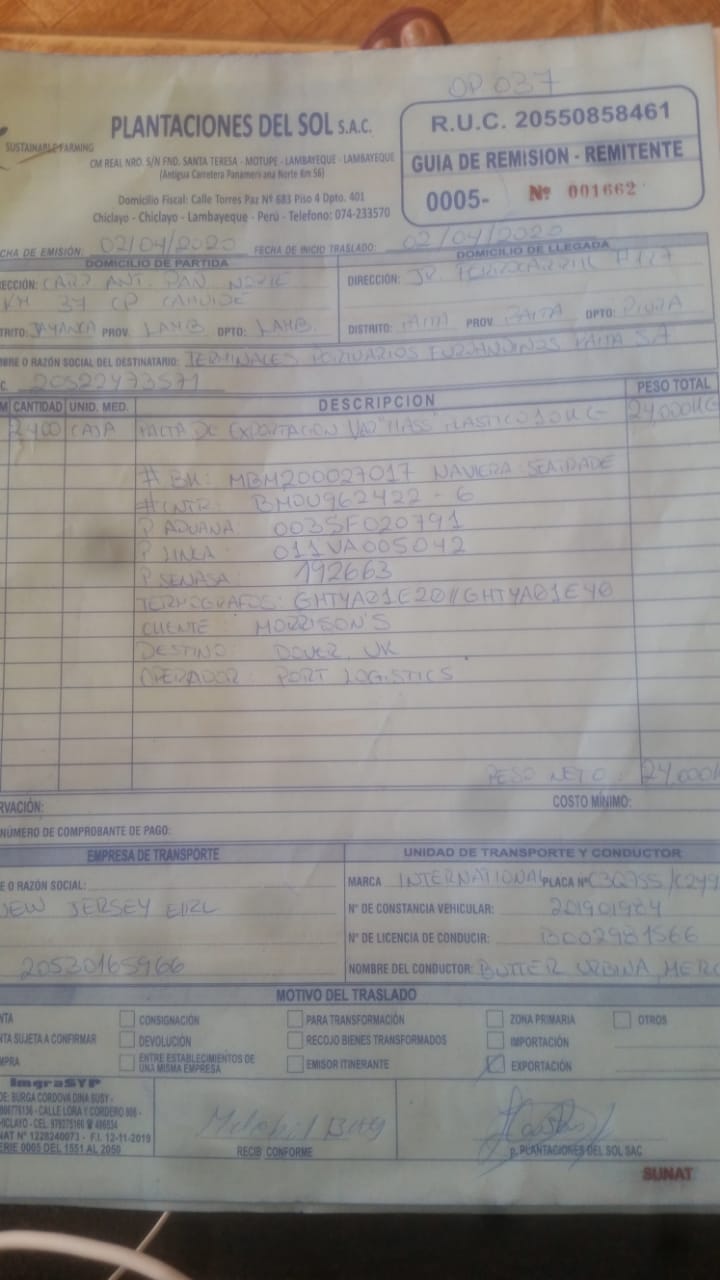 OP 037
SUSTAINABLE FARMING
PLANTACIONES DEL SOL S.A.C.
CM REAL NRO. S/N FND. SANTA TERESA - MOTUPE - LAMBAYEQUE - LAMBAYEQUE
(Antigua Carretera Panamericana Norte Km 56)
Domicilio Fiscal: Calle Torres Paz Nº 683 Piso 4 Dpto. 401
Chiclayo - Chiclayo - Lambayeque - Perú - Telefono: 074-233570
R.U.C. 20550858461
GUIA DE REMISION - REMITENTE
0005- Nº 001662
CHA DE EMISIÓN: 02/04/2020 FECHA DE INICIO TRASLADO: 02/04/2020
DOMICILIO DE PARTIDA
ECCIÓN: CARR ANT. PAN NORTE
KM 37 CP CAHUIDE
TRITO: JAYANCA PROV. LAMB. DPTO: LAMB.
DOMICILIO DE LLEGADA
DIRECCIÓN: JR. FERROCARRIL #127
DISTRITO: PAITA PROV PAITA DPTO: PIURA
BRE O RAZÓN SOCIAL DEL DESTINATARIO: TERMINALES PORTUARIOS EUROANDINOS PAITA SA
C. 20522473571
M CANTIDAD UNID. MED. DESCRIPCION PESO TOTAL
2400 CAJA PALTA DE EXPORTACION VAR "HASS" PLASTICO 10 KG 24,000KG
# BK: MBM200027017 NAVIERA: SEATRADE
# CNTR: BMOU962422-6
P ADUANA: 003SF020791
P LINEA: 011VA005042
P SENASA: 192663
TERMOGRAFOS: GHTYA01E20//GHTYA01E40
CLIENTE: MORRISON'S
DESTINO: DOVER, UK
OPERADOR: PORT LOGISTICS
PESO NETO: 24,000K
RVACIÓN: COSTO MÍNIMO:
NÚMERO DE COMPROBANTE DE PAGO:
EMPRESA DE TRANSPORTE
E O RAZÓN SOCIAL:
NEW JERSEY EIRL
20530165966
UNIDAD DE TRANSPORTE Y CONDUCTOR
MARCA INTERNATIONAL PLACA Nº C3Q755/
Nº DE CONSTANCIA VEHICULAR: 201901984
Nº DE LICENCIA DE CONDUCIR: B002981566
NOMBRE DEL CONDUCTOR: URBINA,
MOTIVO DEL TRASLADO
NTA CONSIGNACIÓN PARA TRANSFORMACIÓN ZONA PRIMARIA OTROS
NTA SUJETA A CONFIRMAR DEVOLUCIÓN RECOJO BIENES TRANSFORMADOS IMPORTACIÓN
MPRA ENTRE ESTABLECIMIENTOS DE UNA MISMA EMPRESA EMISOR ITINERANTE EXPORTACIÓN
ImgraSYP
DE: BURGA CORDOVA DINA SUSY -
- CALLE LORA Y CORDERO 806 -
HICLAYO - CEL.
NAT Nº 1228240073 - F.I. 12-11-2019
ERIE 0005 DEL 1551 AL 2050
RECIBÍ CONFORME
p. PLANTACIONES DEL SOL SAC
SUNAT